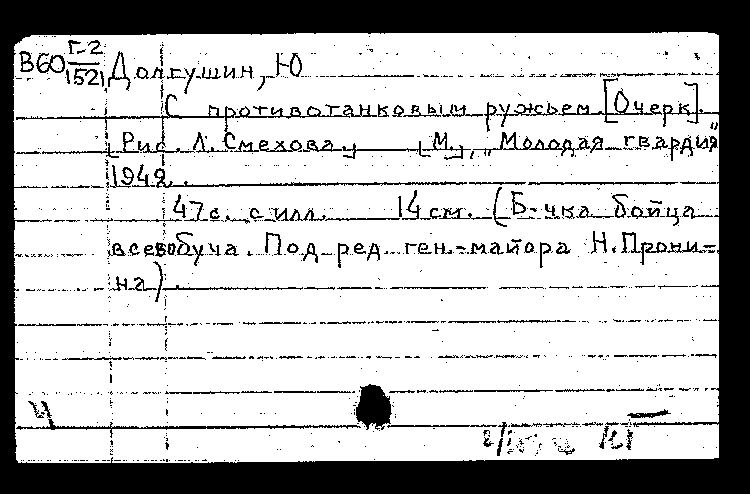 В60 Г-2
1521
Долгушин, Ю
С противотанковым ружьем. [Очерк].
[Рис. Л. Смехова.] [М.], „Молодая гвардия",
1942.
47 с. с илл. 14 см. (Б-чка бойца
всевобуча. Под ред. ген.-майора Н. Прони-
на).